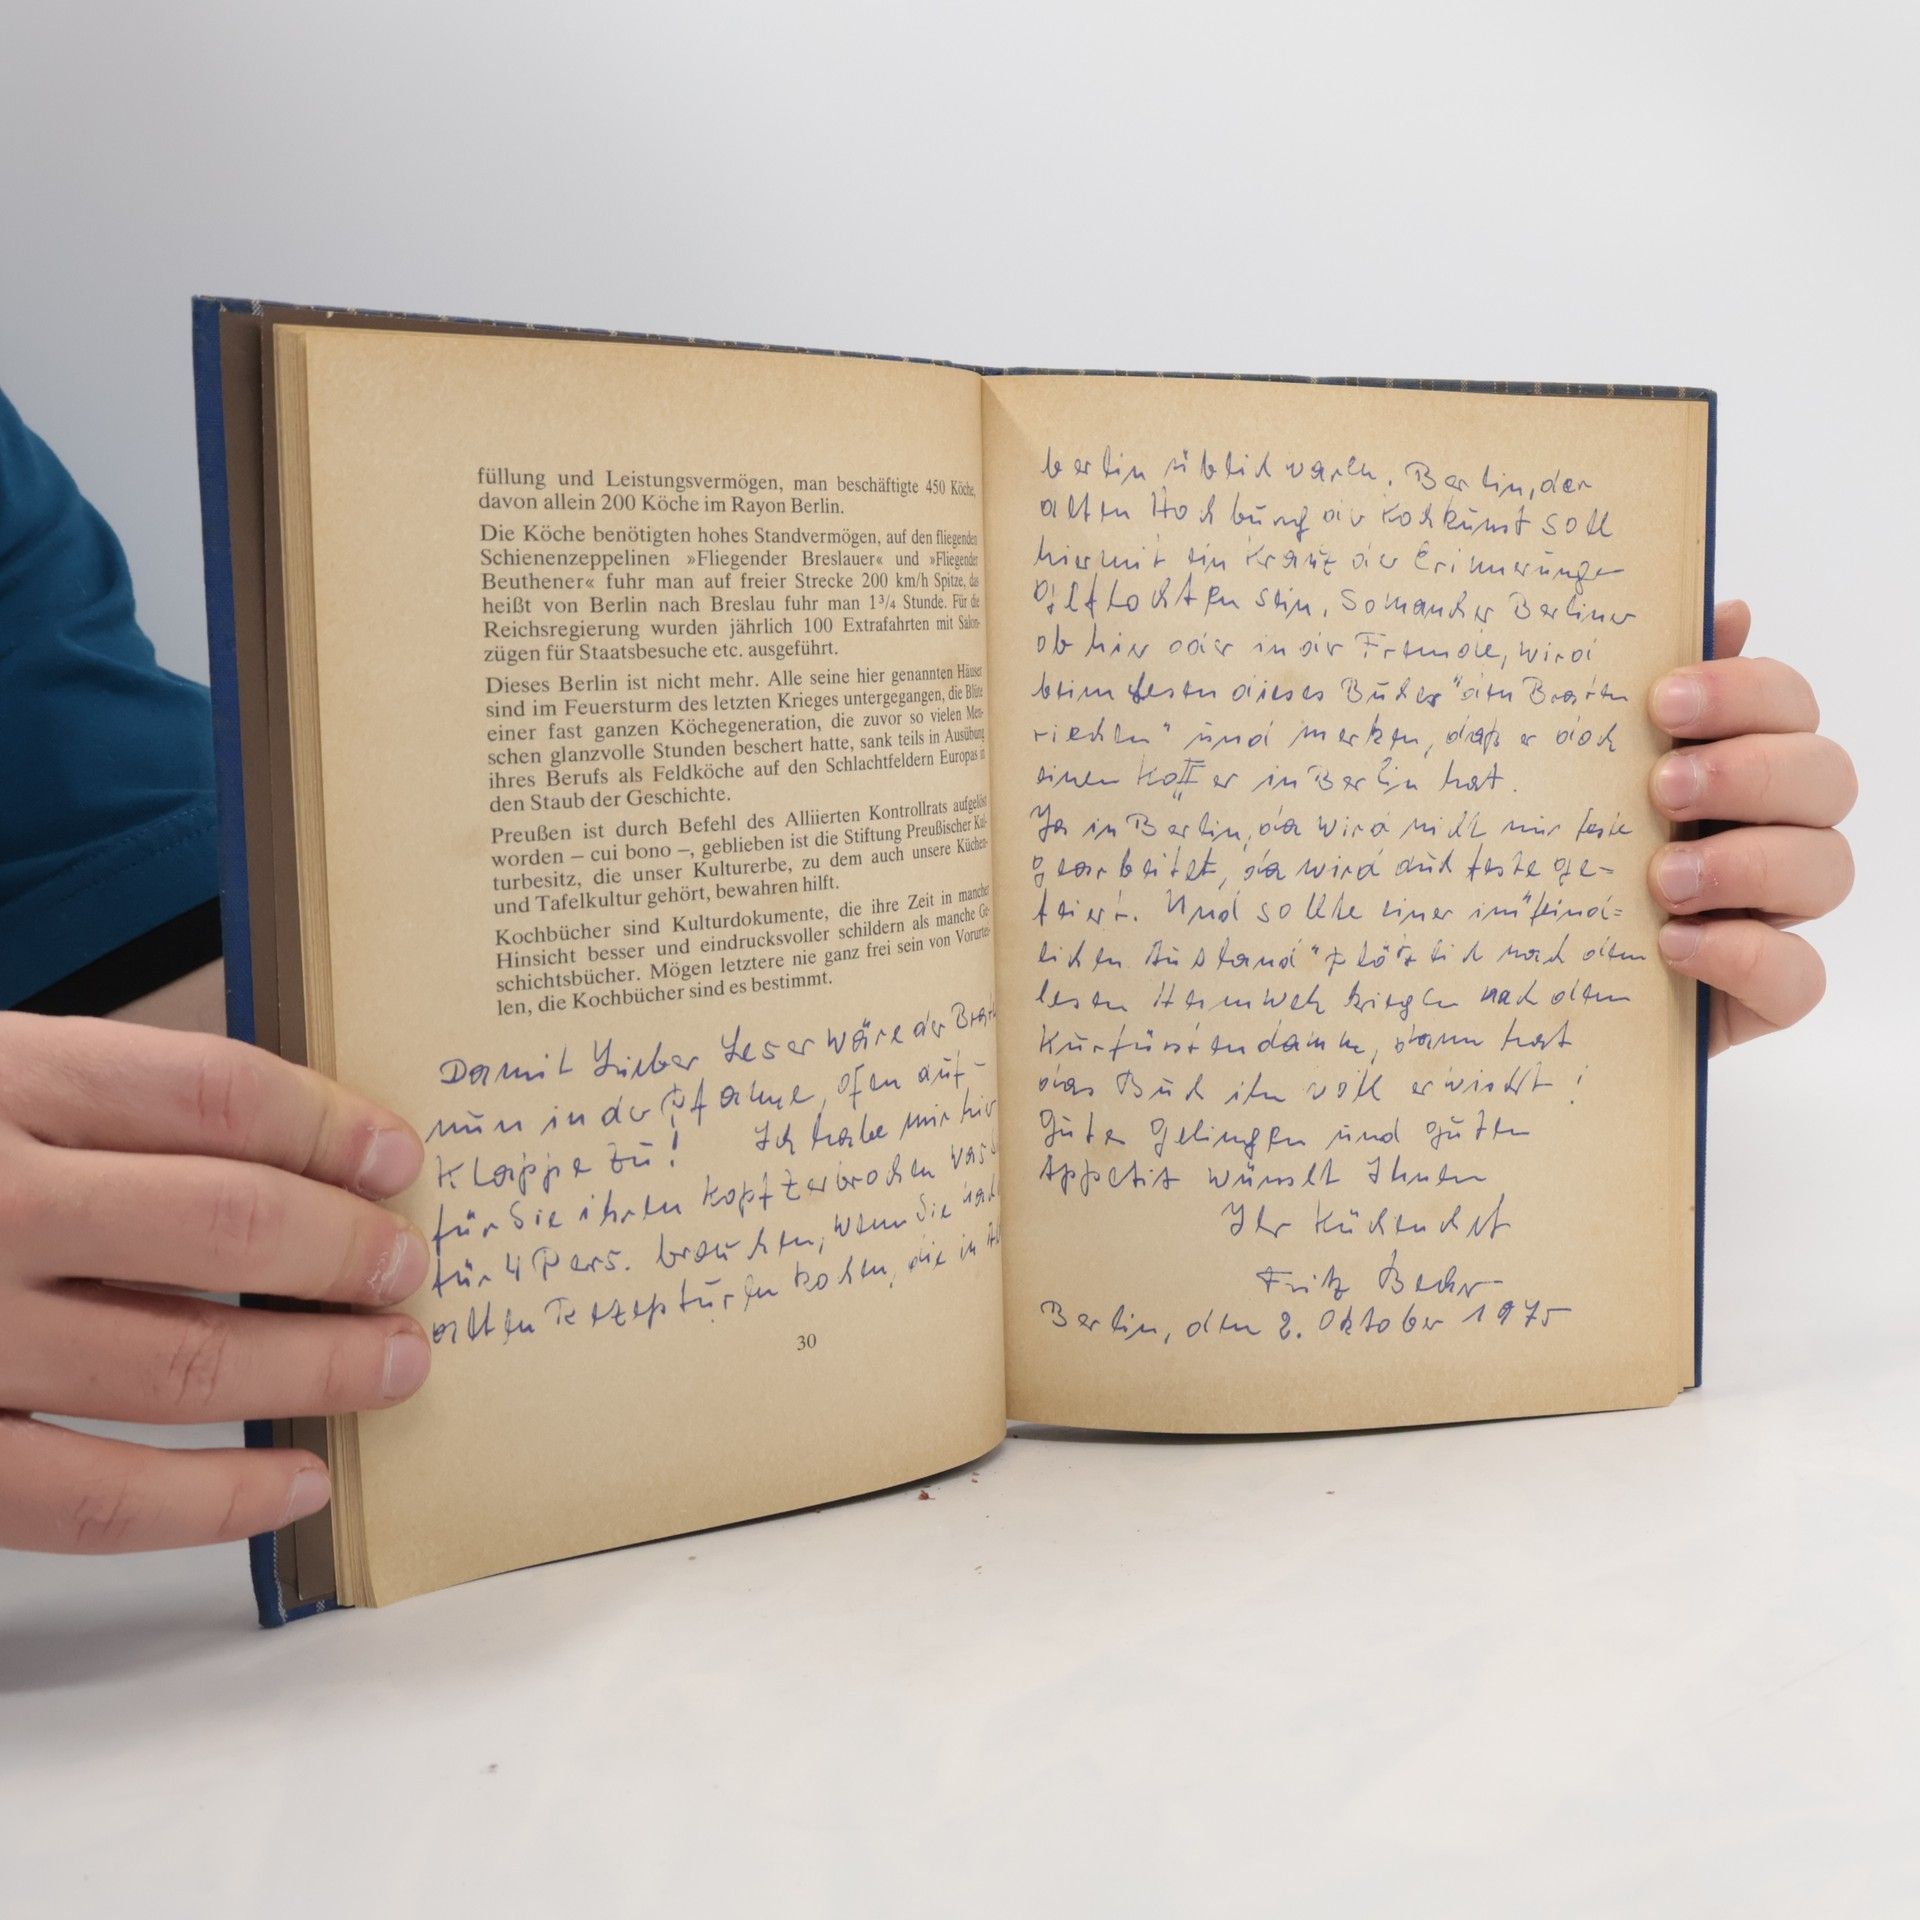 füllung und Leistungsvermögen, man beschäftigte 450 Köche,
davon allein 200 Köche im Rayon Berlin.
Die Köche benötigten hohes Standvermögen, auf den fliegenden
Schienenzeppelinen »Fliegender Breslauer« und »Fliegender
Beuthener« fuhr man auf freier Strecke 200 km/h Spitze, das
heißt von Berlin nach Breslau fuhr man 1¾ Stunde. Für die
Reichsregierung wurden jährlich 100 Extrafahrten mit Salon-
zügen für Staatsbesuche etc. ausgeführt.
Dieses Berlin ist nicht mehr. Alle seine hier genannten Häuser
sind im Feuersturm des letzten Krieges untergegangen, die Blüte
einer fast ganzen Köchegeneration, die zuvor so vielen Men-
schen glanzvolle Stunden beschert hatte, sank teils in Ausübung
ihres Berufs als Feldköche auf den Schlachtfeldern Europas in
den Staub der Geschichte.
Preußen ist durch Befehl des Alliierten Kontrollrats aufgelöst
worden – cui bono –, geblieben ist die Stiftung Preußischer Kul-
turbesitz, die unser Kulturerbe, zu dem auch unsere Küchen-
und Tafelkultur gehört, bewahren hilft.
Kochbücher sind Kulturdokumente, die ihre Zeit in mancher
Hinsicht besser und eindrucksvoller schildern als manche Ge-
schichtsbücher. Mögen letztere nie ganz frei sein von Vorurtei-
len, die Kochbücher sind es bestimmt.
Damit Lieber Leser wäre der
nun in der Pfanne, Ofen auf-
Klappe zu! Ich habe mir hier
für Sie ihren Kopf zerbrochen was
für 4 Pers. brauchen, wenn Sie nach
alten Rezepturen kochen, die in
30
berlin üblich waren. Berlin, der
alten Hochburg der Kochkunst soll
hiermit ein Kranz der Erinnerunge
geflochten sein. So mancher Berliner
ob hier oder in der Fremde, wird
beim Lesen dieses Buches "den Braten
riechen" und merken, daß er doch
einen Koffer in Berlin hat.
Ja in Berlin, da wird nicht nur feste
gearbeitet, da wird auch feste ge=
feiert. Und sollte einer im "feind=
lichen Ausland" plötzlich nach dem
lesen Heimweh kriegen nach dem
Kurfürstendamm, dann hat
das Buch ihn voll erwischt!
Gutes Gelingen und guten
Appetit wünscht Ihnen
Ihr Küchenchef
Fritz Becker
Berlin, den 2. Oktober 1975